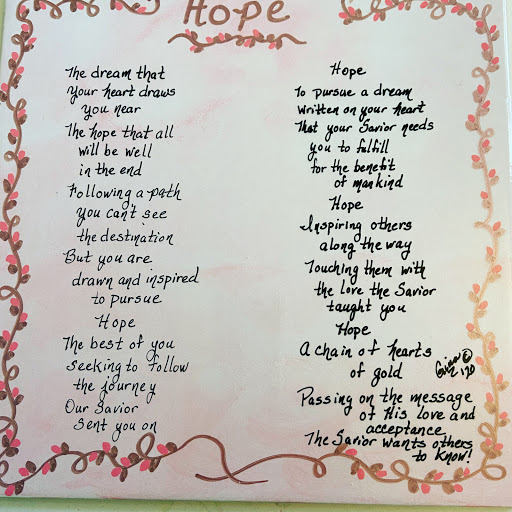 Hope
The dream that
your heart draws
you near
The hope that all
will be well
in the end
Following a path
you can't see
the destination
But you are
drawn and inspired
to pursue
Hope
The best of you
seeking to follow
the journey
Our Savior
sent you on
Hope
To pursue a dream
written on your heart
That your Savior needs
you to fulfill
for the benefit
of mankind
Hope
Inspiring others
along the way
Touching them with
the love the Savior
taught you
Hope
A chain of hearts
of gold
Passing on the message
of His love and
acceptance
The Savior wants others
to know!